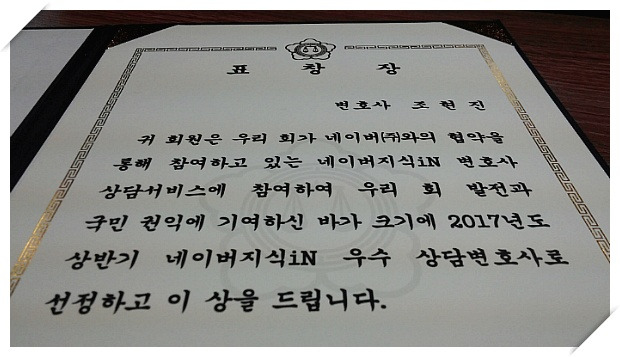 표 창 장
변호사 조 현 진
귀 회원은 우리 회가 네이버㈜와의 협약을
통해 참여하고 있는 네이버지식iN 변호사
상담서비스에 참여하여 우리 회 발전과
국민 권익에 기여하신 바가 크기에 2017년도
상반기 네이버지식iN 우수 상담변호사로
선정하고 이 상을 드립니다.